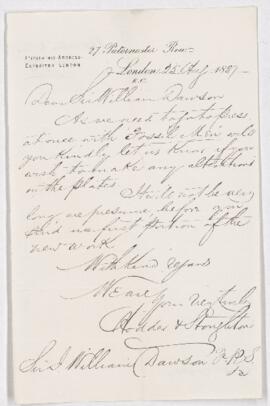 27 Paternoster Row
London 25 Aug 1887
E.C.
Dear Sir William Dawson
As we need to go to press
at once with Fossil Men will
you kindly let us know if you
wish to make any alterations
in the plates.
It will not be very
long we presume, before you
send us first portion of the
new work.
With kind regards
We are
Yours very truly
Hodder & Stoughton
Sir J. William Dawson F.R.S